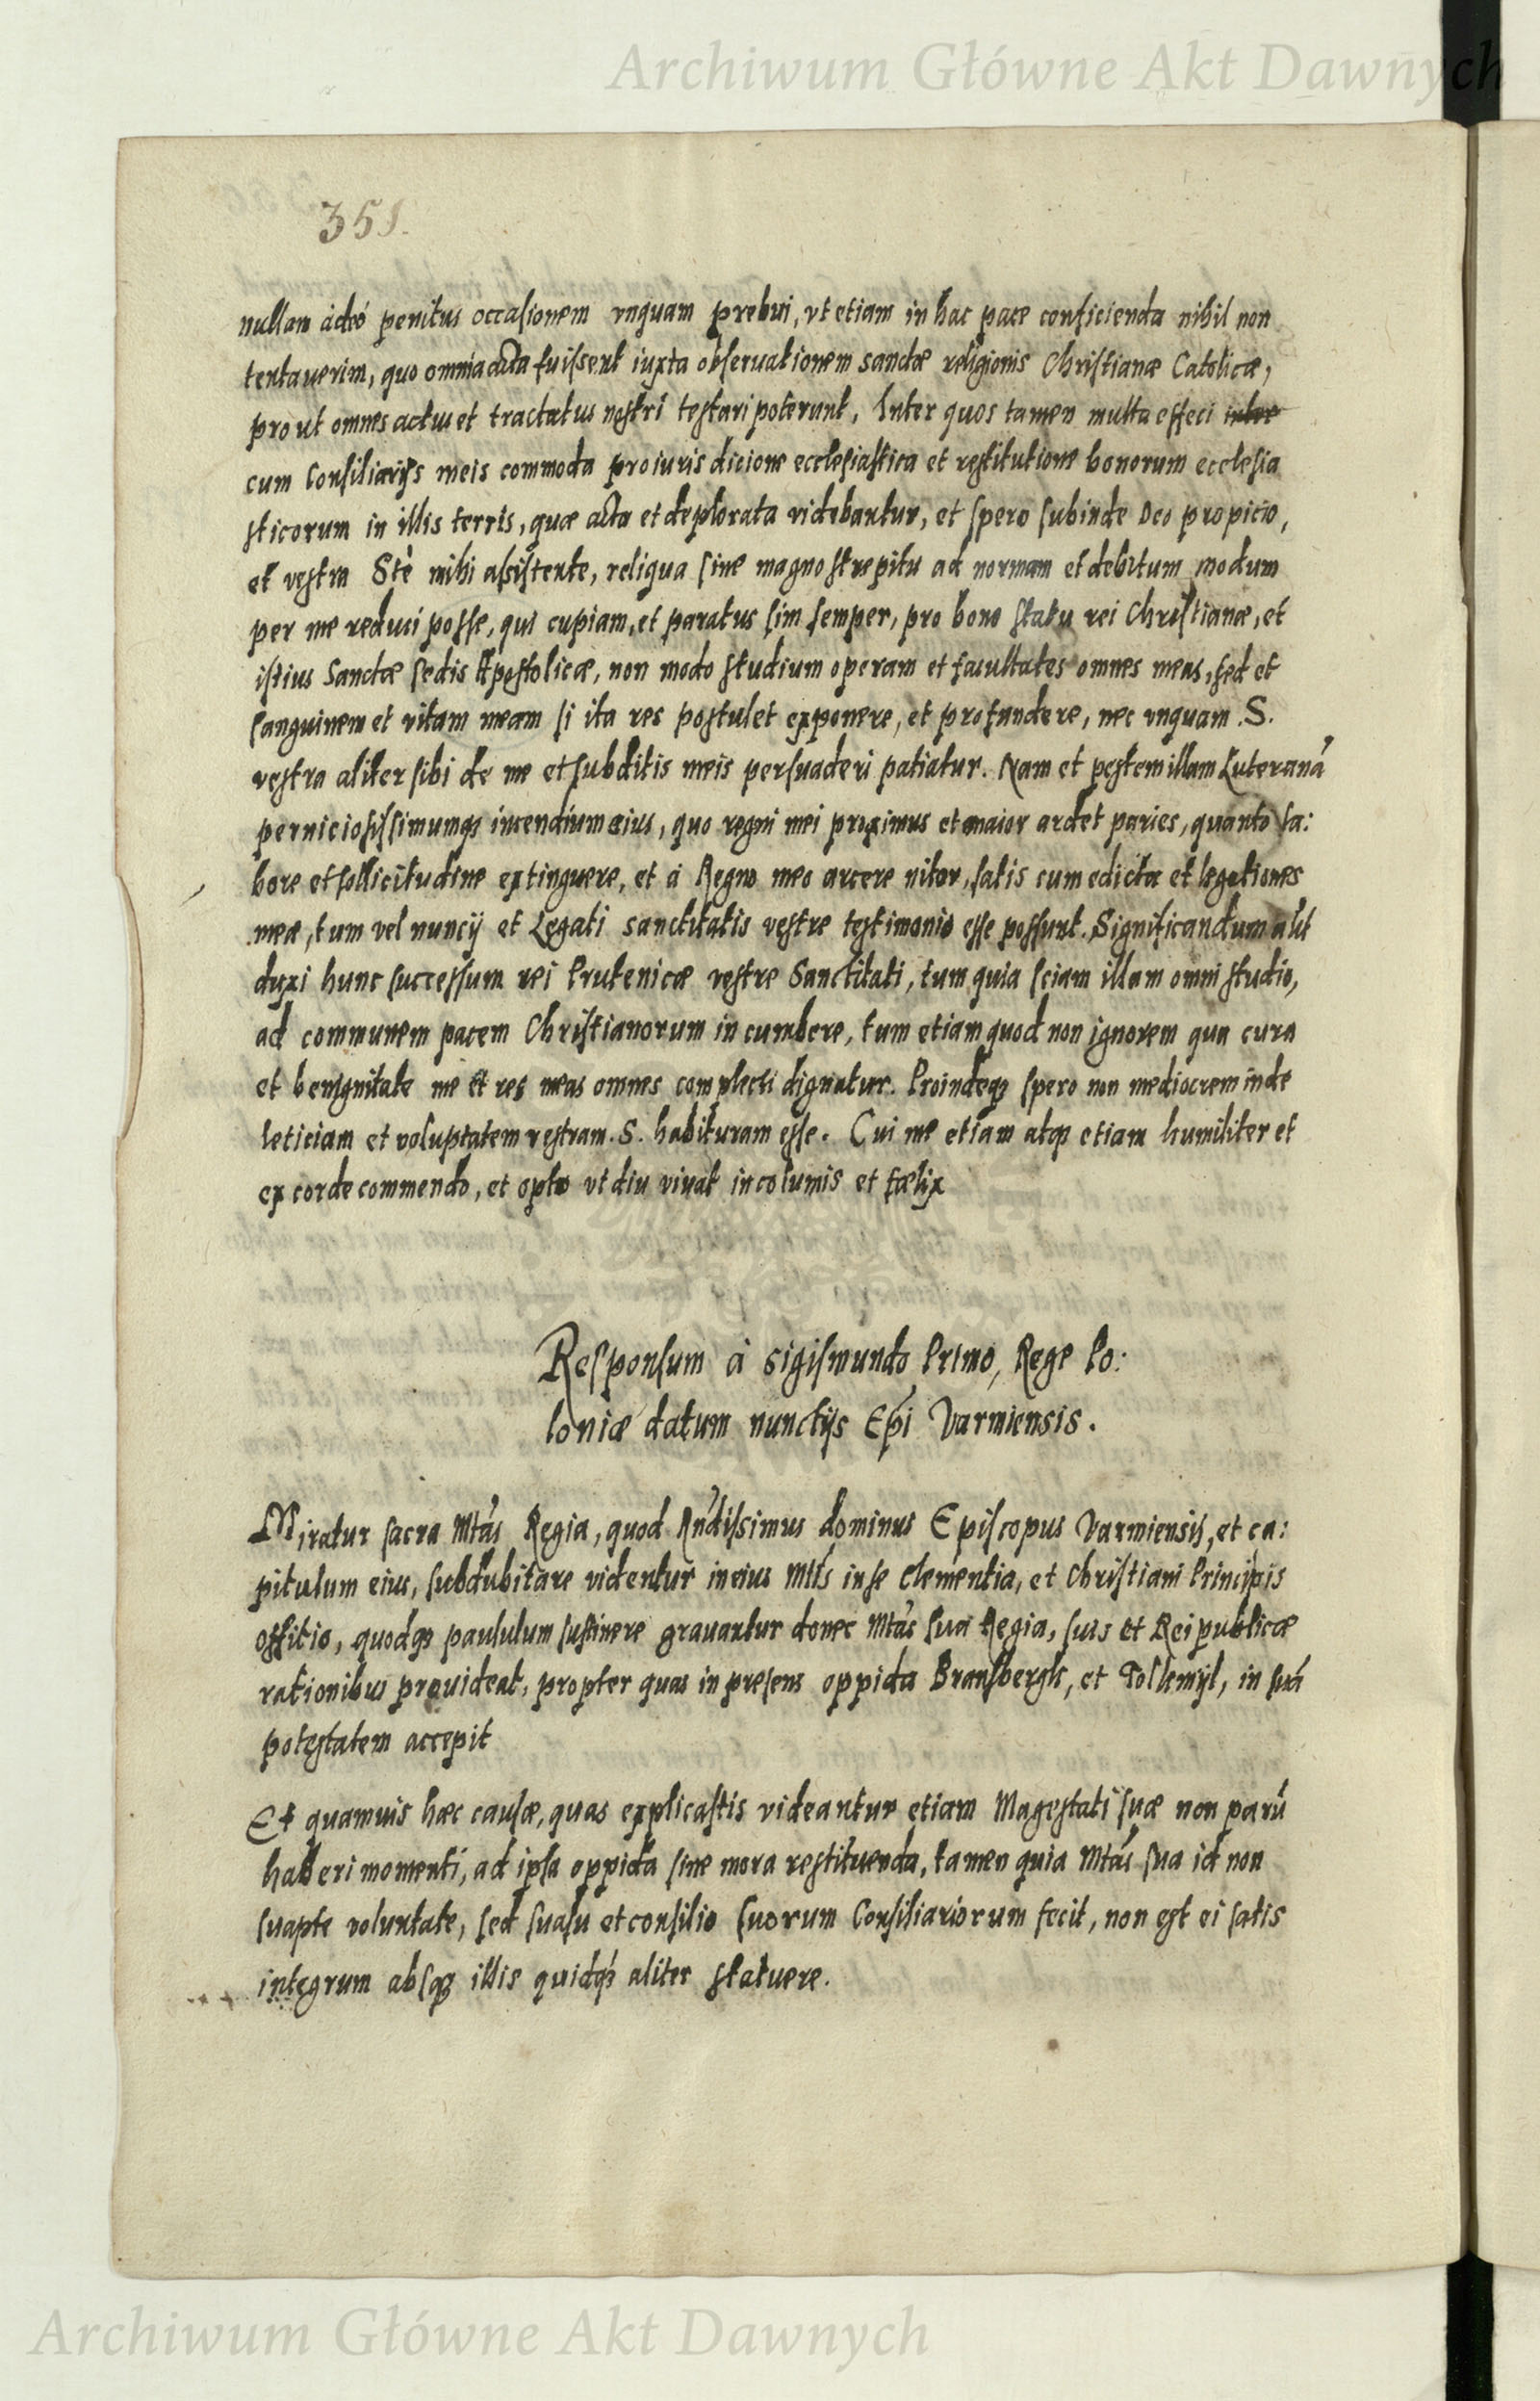 Archiwum Główne Akt Dawnych
351.
nullam adeó penitus occasionem vnquam prebui, vt etiam in hac pace conficienda nihil non
tentauerim, quo omnia acta fuissent iuxta obseruationem sanctæ religionis Christianæ Catolicæ,
prout omnes actus et tractatus nostri testari poterunt, Inter quos tamen multa effeci inter
cum Consiliarijs meis commoda pro iurisdicione ecclesiastica et restitutione bonorum ecclesia
sticorum in illis terris, quæ acta et deplorata videbantur, et spero subinde Deo propicio,
et vestra Stè mihi assistente, reliqua sine magno strepitu ad normam et debitum modum
per me reduci posse, qui cupiam, et paratus sim semper, pro bono statu rei Christianæ, et
istius Sanctæ sedis Apostolicæ, non modo studium operam et facultates omnes meas, sed et
sanguinem et vitam meam si ita res postulet exponere, et profundere, nec vnquam .S.
vestra aliter sibi de me et subditis meis persuaderi patiatur. Nam et pestem illam Luteranã
perniciosissimumq3 incendium eius, quo regni mei proximus et maior ardet paries, quanto la:
bore et sollicitudine extinguere, et à Regno meo arcere nitor, satis cum edicta et legationes
meæ, tum vel nuncij et Legati sanctitatis vestre testimonio esse possunt. Significandum aũt
duxi hunc successum rei Prutenicæ vestre Sanctitati, tum quia sciam illam omni studio,
ad communem pacem Christianorum incumbere, tum etiam quod non ignorem qua cura
et benignitate me et res meas omnes complecti dignatur. Proindeq3 spero non mediocrem inde
leticiam et voluptatem vestram .S. habituram esse. Cui me etiam atq3 etiam humiliter et
ex corde commendo, et opto vt diu viuat incolumis et fœlix
Responsum à Sigismundo Primo, Rege Po:
loniæ datum nunctijs Epĩ Varmiensis.
Miratur sacra Mtás Regia, quod Rn̄dissimus dominus Episcopus Varmiensis, et ca:
pitulum eius, subdubitare videntur in eius Mtĩs in se Clementia, et Christiani Principis
officio, quodq3 paululum sustinere grauantur donec Mtás sua Regia, suis et Reipublicæ
rationibus prouideat, propter quas in presens oppida Bransbergk, et Tolkmijt, in suã
potestatem accepit
Et quamuis hæc causæ, quas explicastis videantur etiam Magestati suæ non parũ
haberi momenti, ad ipsa oppida sine mora restituenda, tamen quia Mtás sua id non
suapte voluntate, sed suasu et consilio suorum Consiliariorum fecit, non est ei satis
integrum absq3 illis quidq̃ aliter statuere.
Archiwum Główne Akt Dawnych